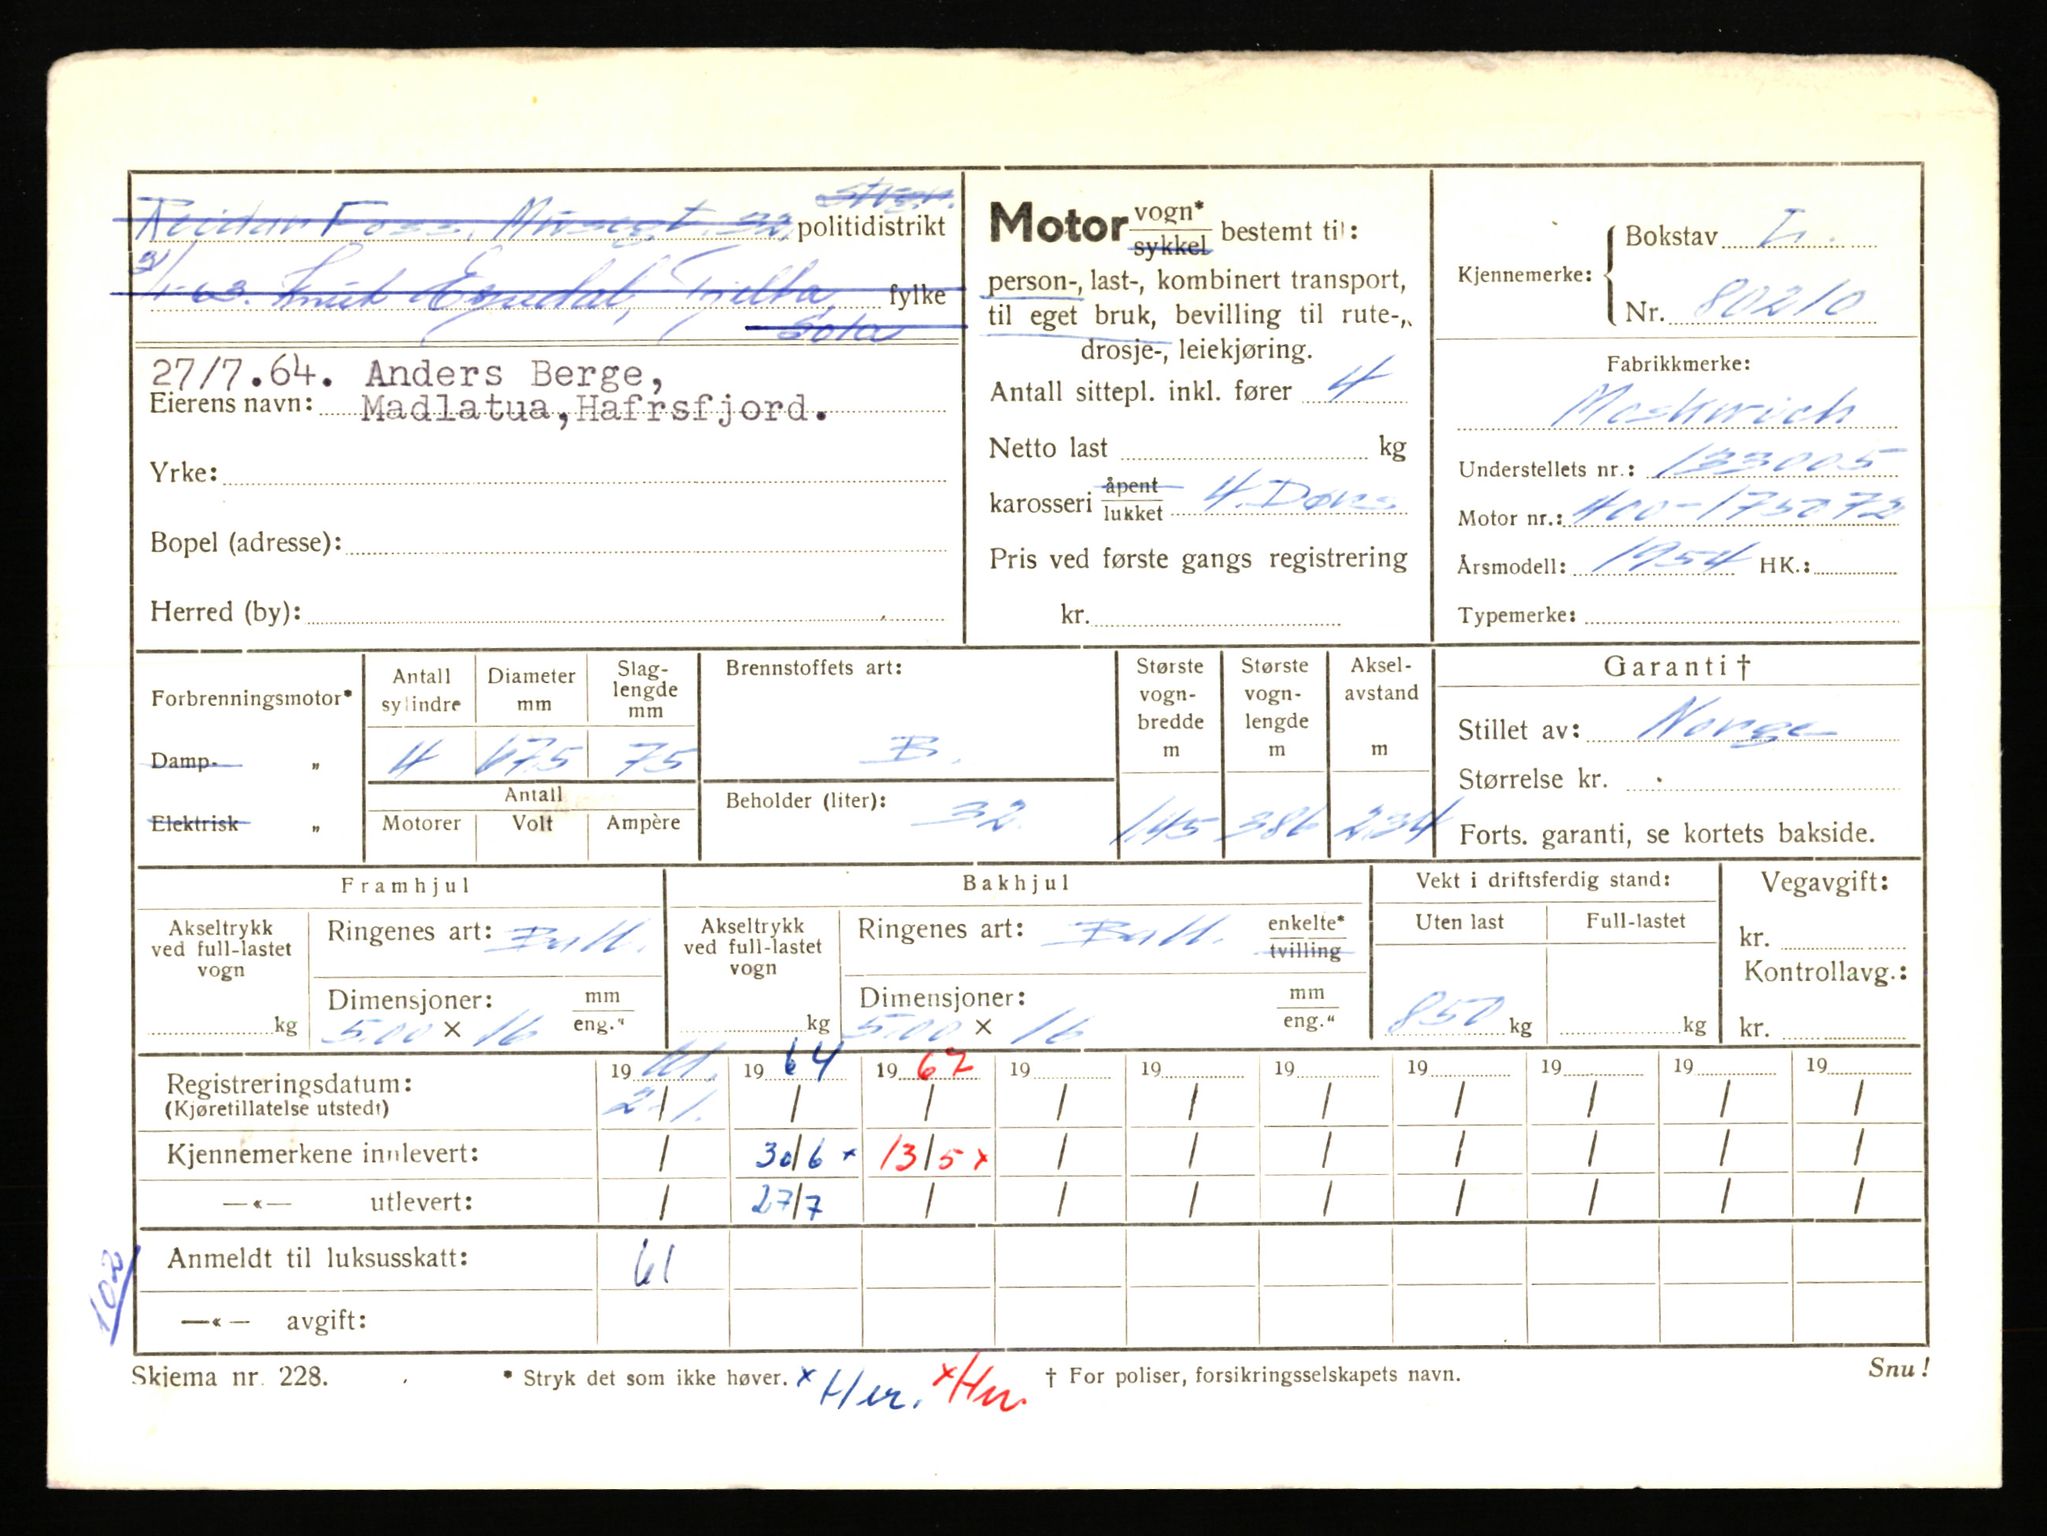 Reidar Foss, Musegt. 32, politidistrikt
63. Knut Egedal, Tjelta fylke
Sola
27/7.64. Anders Berge,
Eierens navn: Madlatua, Hafrsfjord.
Yrke:
Bopel (adresse):
Herred (by):
Motor vogn* sykkel bestemt til:
person-, last-, kombinert transport,
til eget bruk, bevilling til rute-,
drosje-, leiekjøring.
Antall sittepl. inkl. fører 4
Netto last kg
karosseri åpent lukket 4. Dørs
Pris ved første gangs registrering
kr.
Kjennemerke: Bokstav L.
Nr. 80210
Fabrikkmerke:
Moskwich
Understellets nr.: 133005
Motor nr.: 400-175072
Årsmodell: 1954 HK.:
Typemerke:
Forbrenningsmotor*
Damp- „
Elektrisk „
Antall sylindre
Diameter mm
Slag-
lengde
mm
4 67,5 75
Antall
Motorer Volt Ampère
Brennstoffets art:
B.
Beholder (liter): 32.
Største
vogn-
bredde
m
145
Største
vogn-
lengde
m
386
Aksel-
avstand
m
234
Garanti †
Stillet av: Norge
Størrelse kr.
Forts. garanti, se kortets bakside.
Framhjul
Akseltrykk
ved full-lastet
vogn
kg
Ringenes art: Ball.
Dimensjoner: mm
5.00 × 16 eng."
Bakhjul
Akseltrykk
ved full-lastet
vogn
kg
Ringenes art: Ball. enkelte*
tvilling
Dimensjoner: mm
5.00 × 16 eng."
Vekt i driftsferdig stand:
Uten last Full-lastet
850 kg kg
Vegavgift:
kr.
Kontrollavg.:
kr.
Registreringsdatum: 19 61. 19 64 19 67 19 19 19 19 19 19 19
(Kjøretillatelse utstedt) 2/1. / / / / / / / / /
Kjennemerkene innlevert: / 30/6 x 13/5 x / / / / / / /
—«— utlevert: / 27/7 / / / / / / / /
Anmeldt til luksusskatt: 61
—«— avgift:
102
Skjema nr. 228. * Stryk det som ikke høver. x Her. x Her † For poliser, forsikringsselskapets navn. Snu!